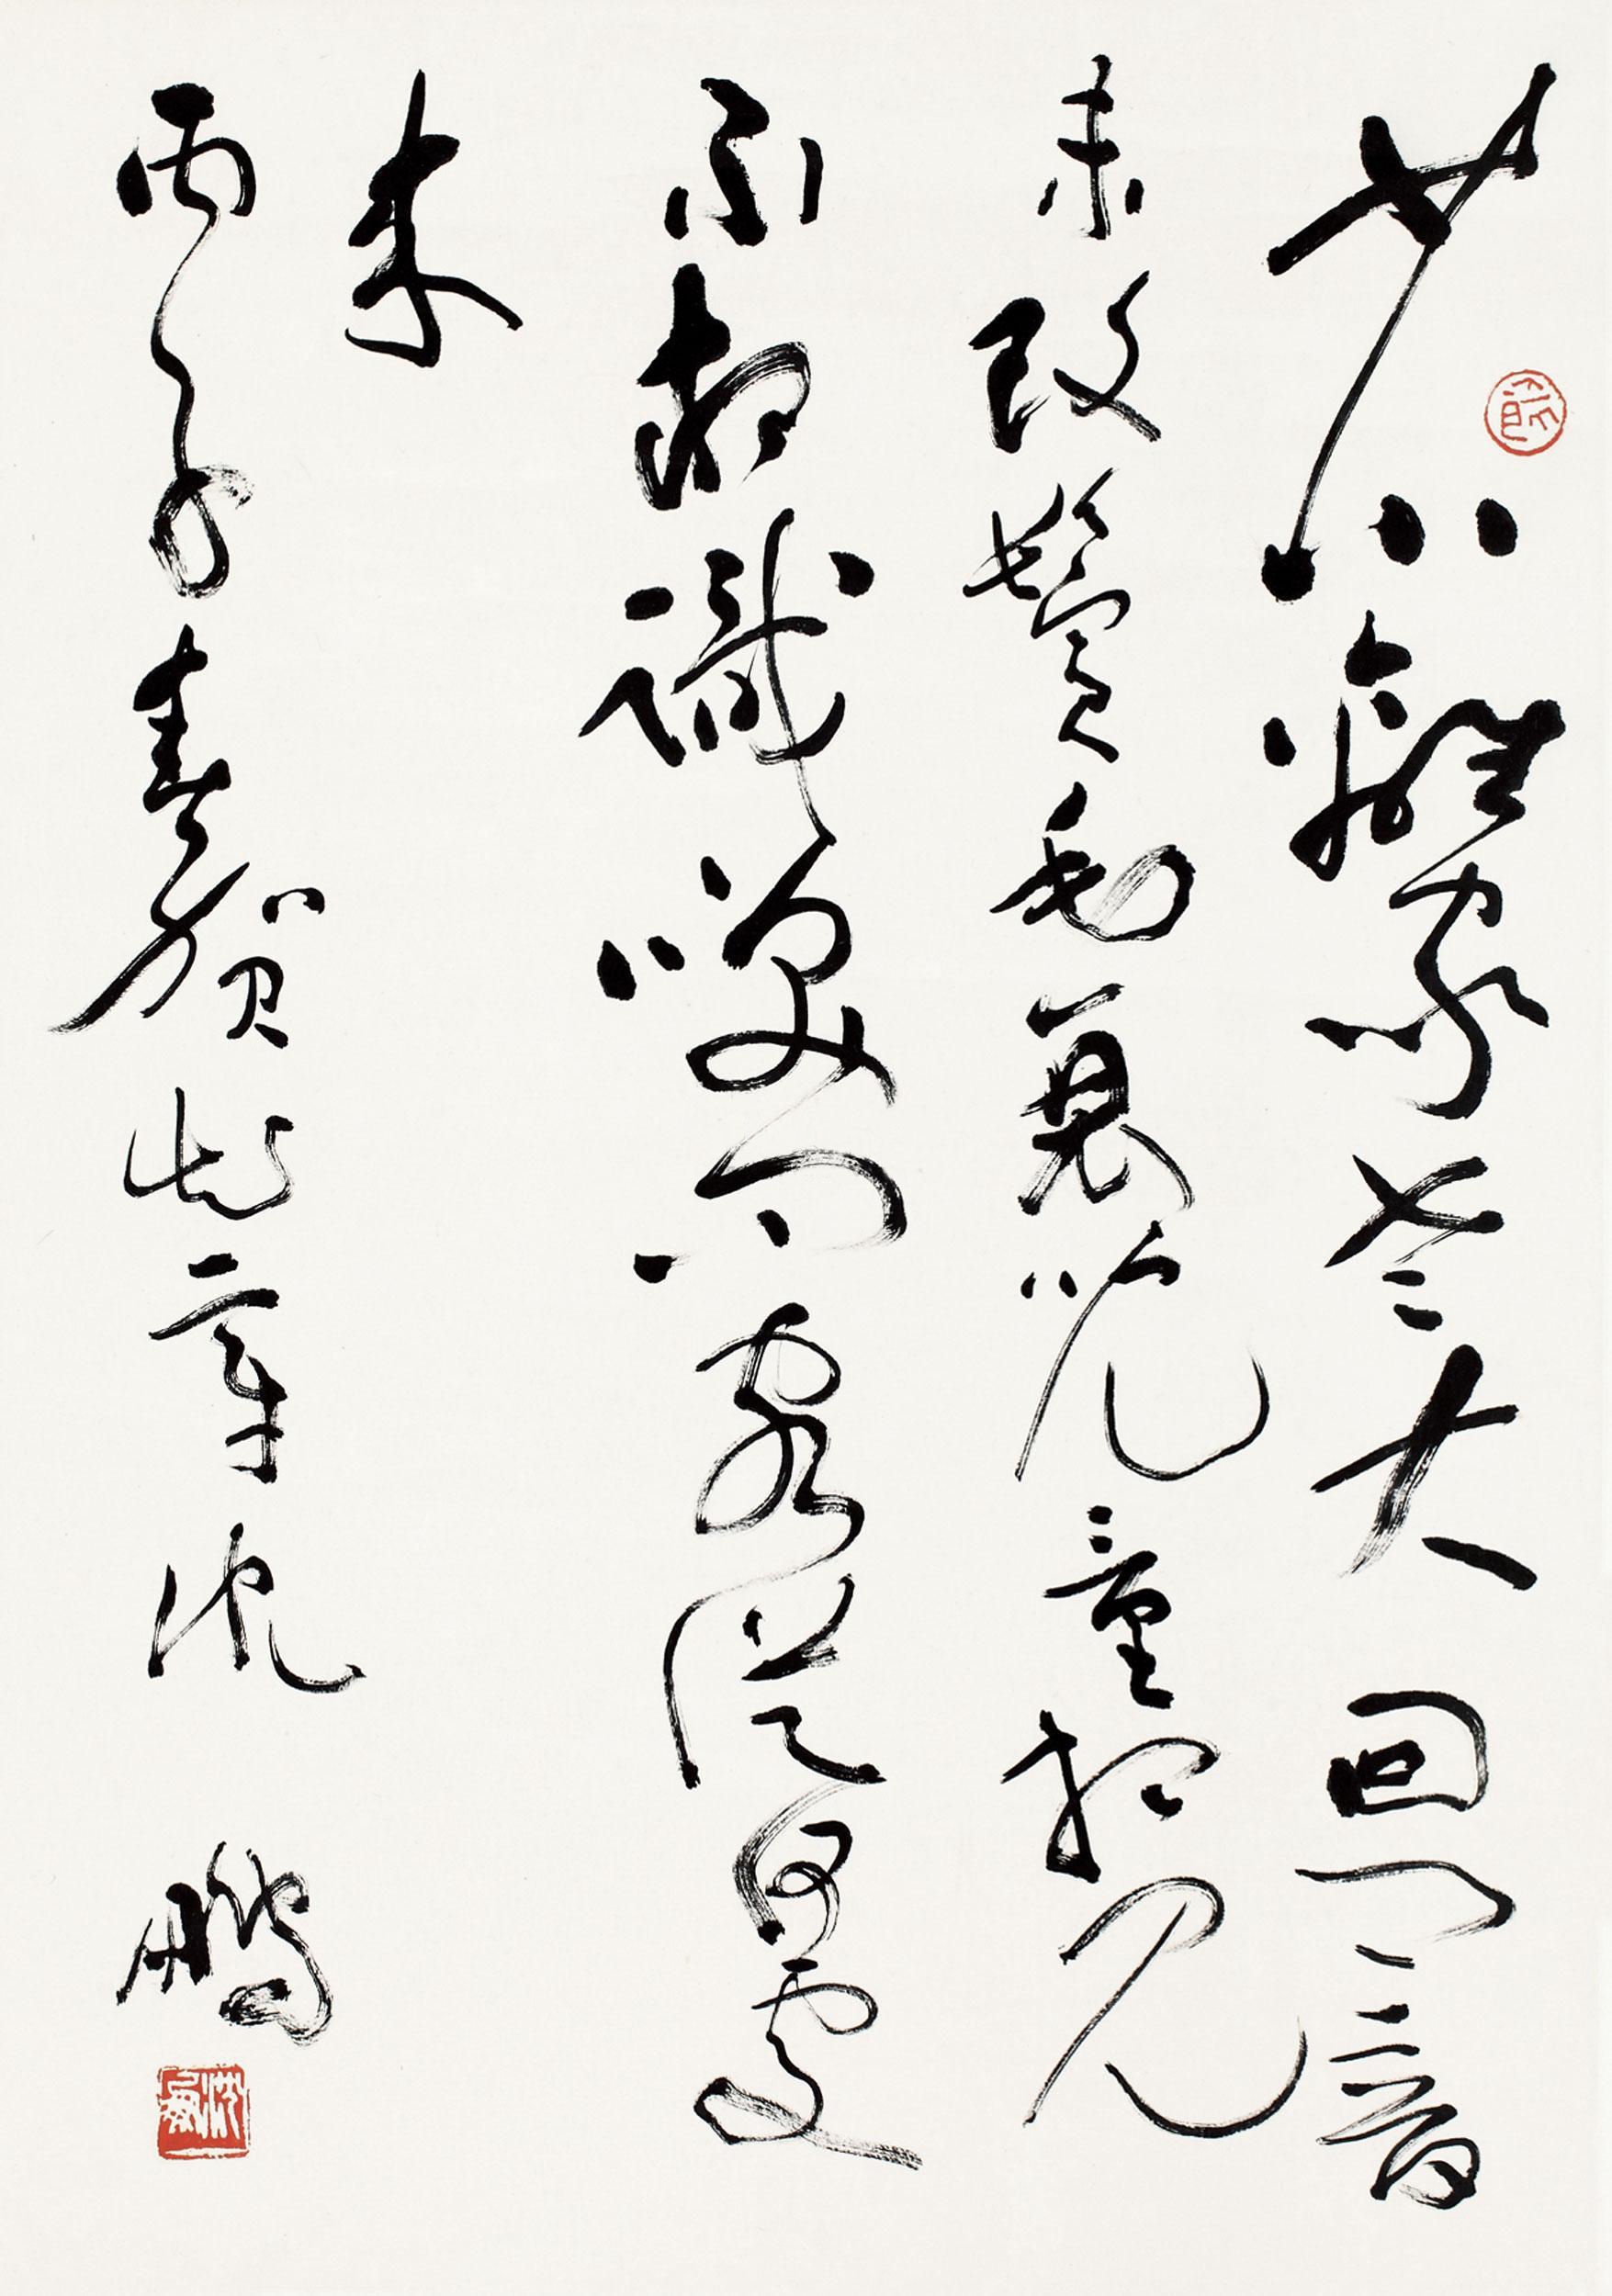 少小離家老大回鄉音
未改鬢毛衰兒童相見
不相識笑問客從何處
來
丙子春賀知章沈鵬
沈鵬